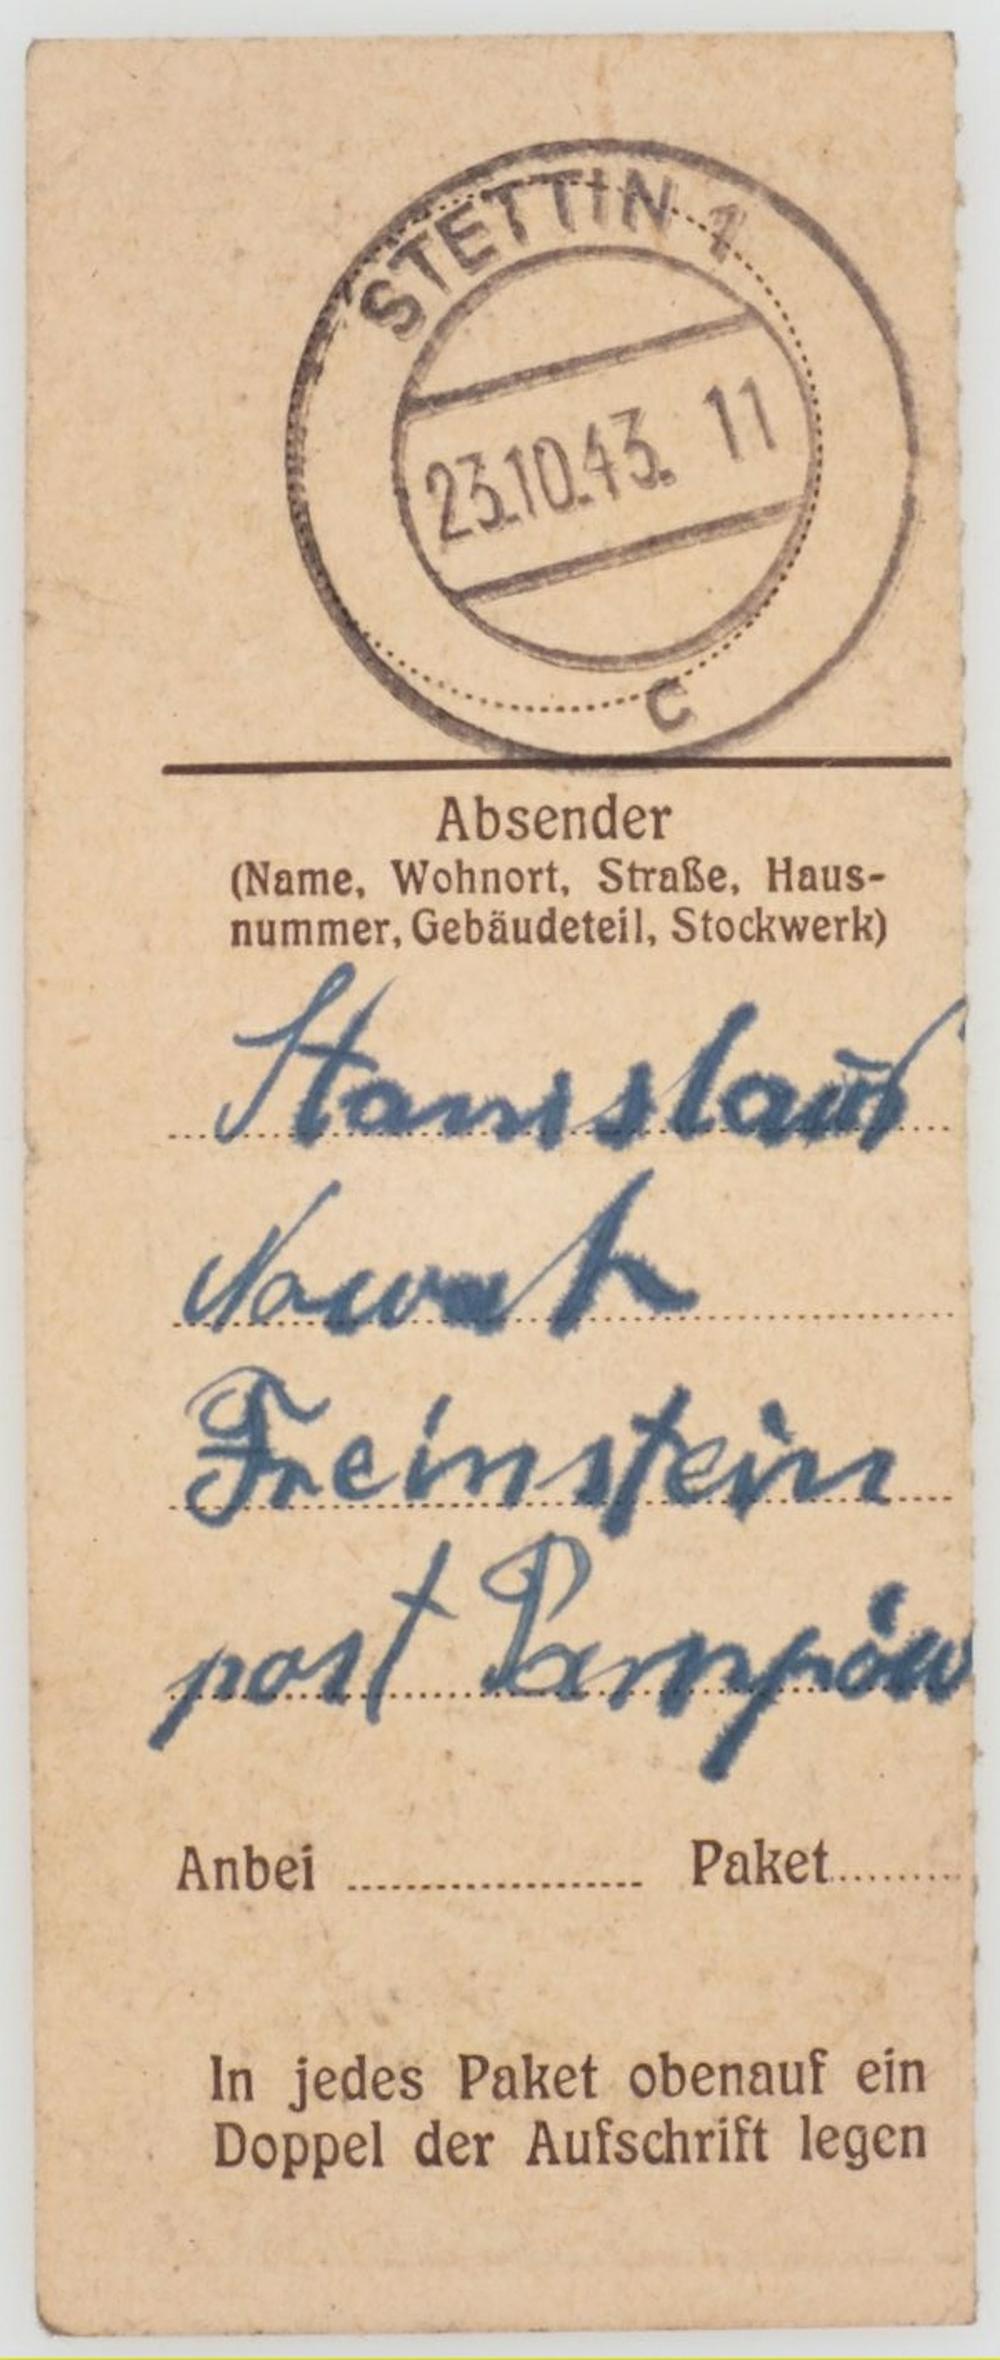 STETTIN 1
23.10.43. 11
C
Absender
(Name, Wohnort, Straße, Haus-
nummer, Gebäudeteil, Stockwerk)
Stanislaw
Nowak
Freinstein
post Pampów
Anbei .................... Paket.........
In jedes Paket obenauf ein
Doppel der Aufschrift legen